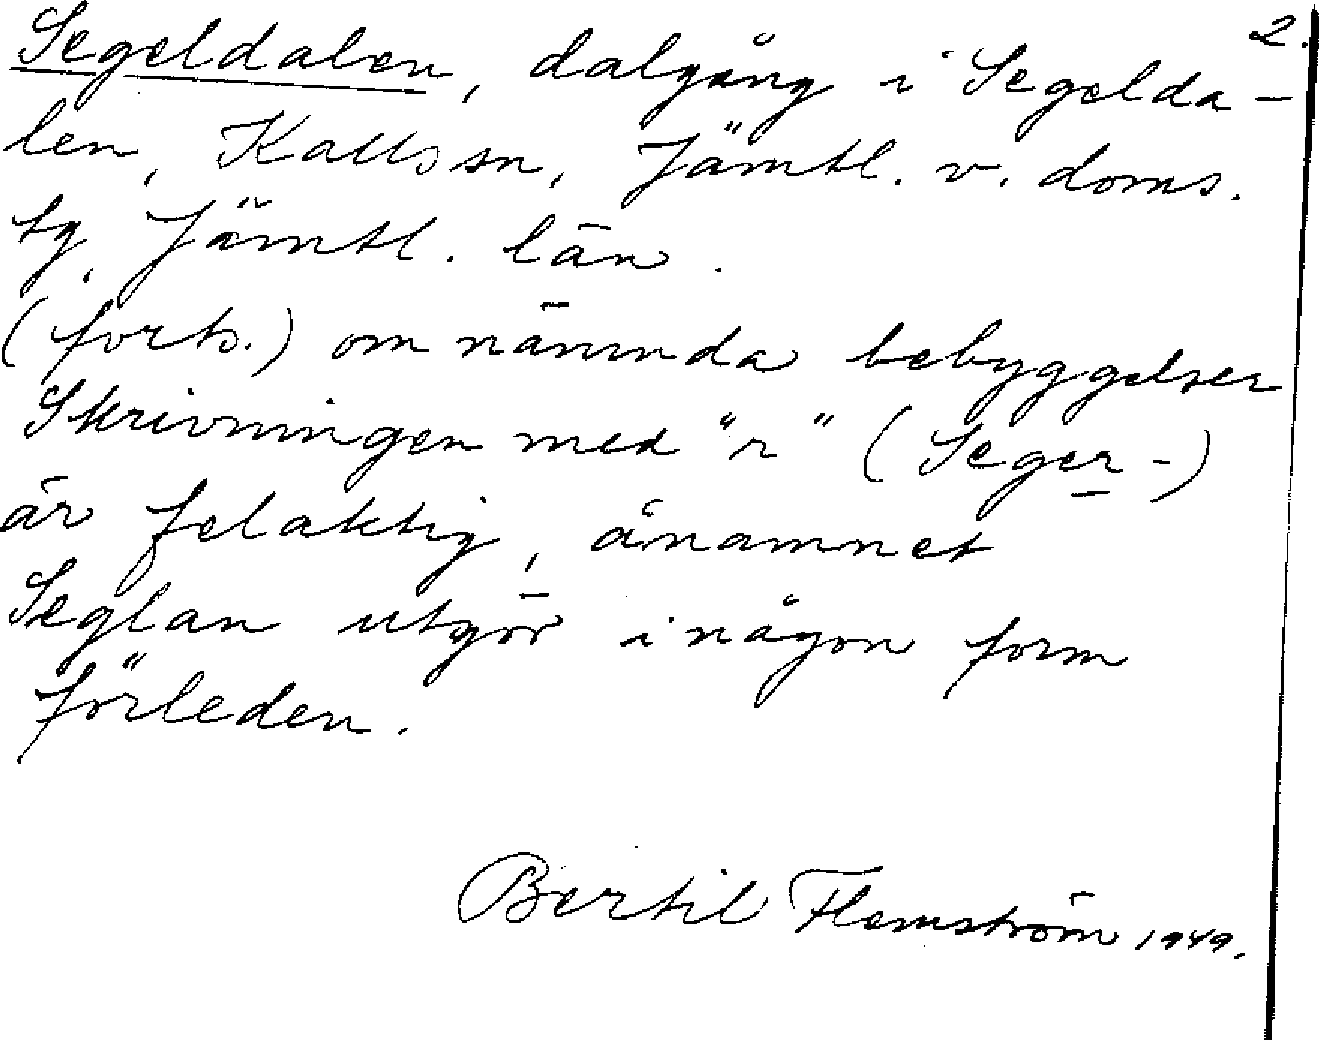 2.
Segeldalen, dalgång i Segelda-
len, Kalls sn, Jämtl. v. doms.
tg, Jämtl. län.
(forts.) om nämnda bebyggelser
Skrivningen med "r" (Seger-)
är felaktig, ånamnet
Seglan utgör i någon form
förleden.
Bertil Flemström 1949.